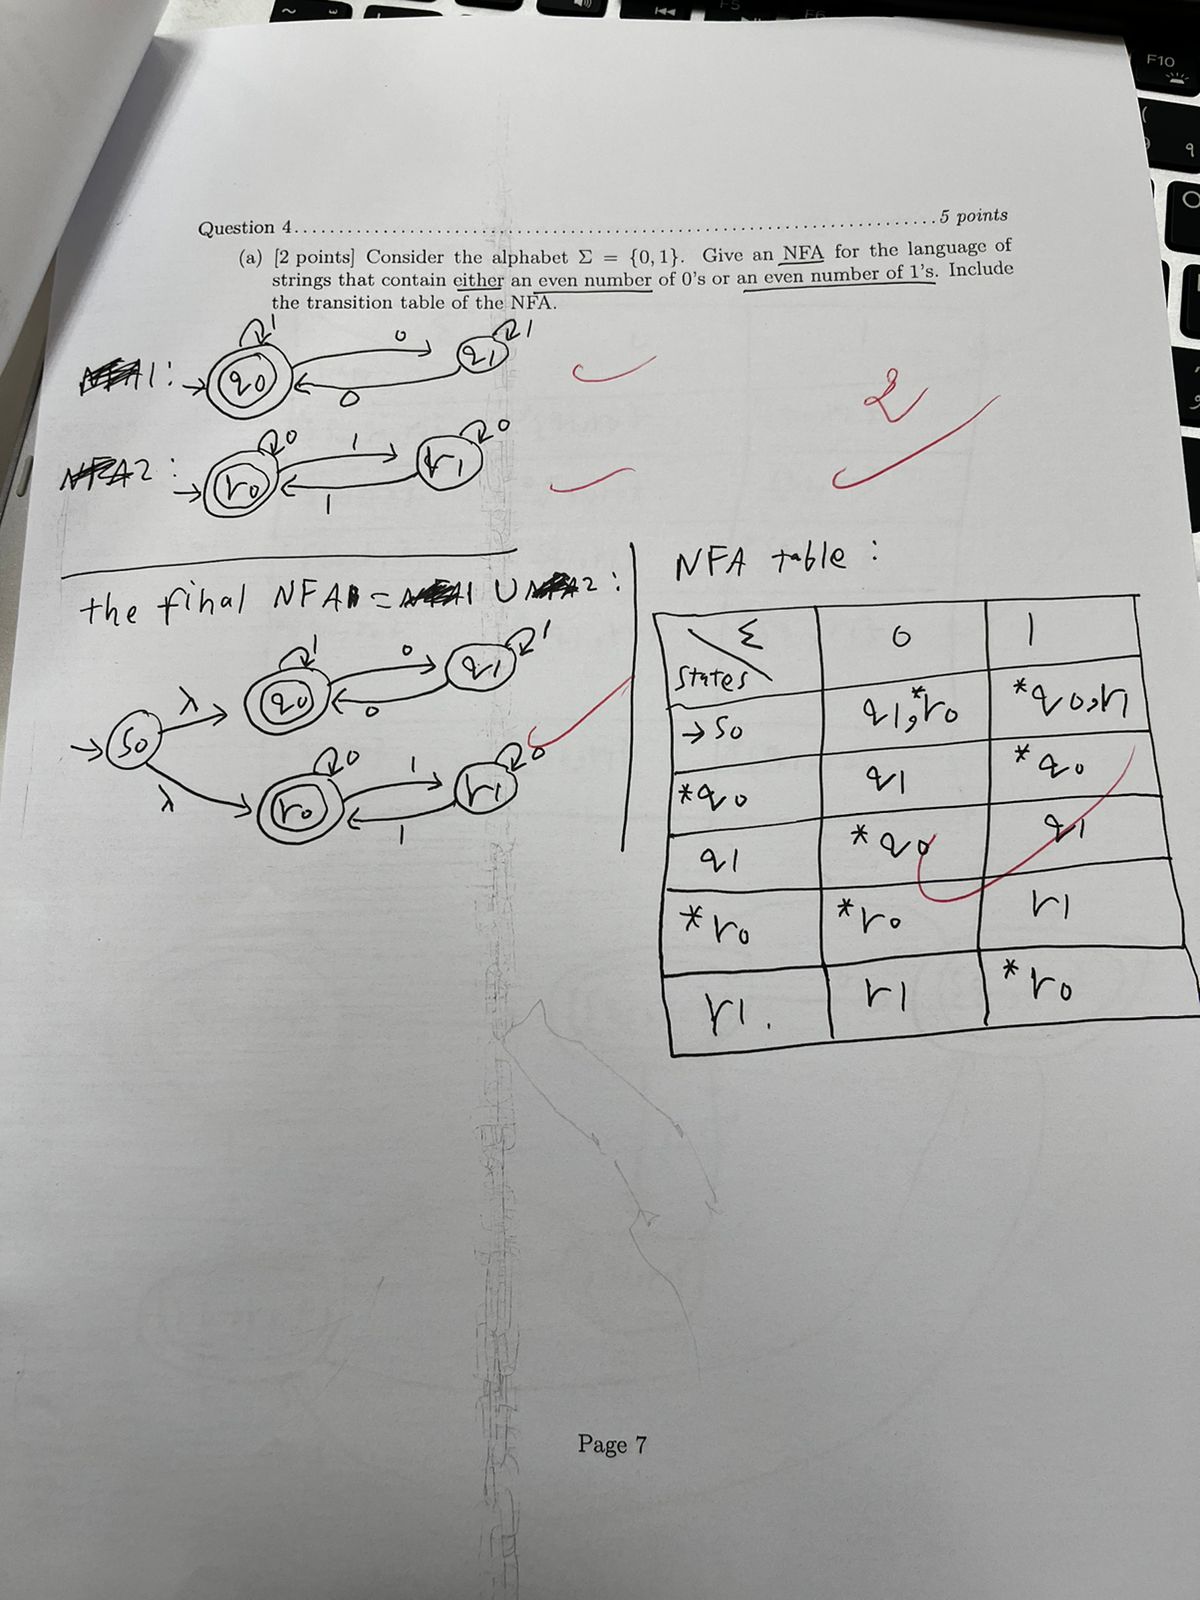 F5
F6
F10
Question 4. . . . . . . . . . . . . . . . . . . . . . . . . . . . . . . . . . . . . . . . . . . . . . . . . . . . . . . . . . . . . . . . . . . . . . . . 5 points
(a) [2 points] Consider the alphabet Σ = {0, 1}. Give an NFA for the language of
strings that contain either an even number of 0's or an even number of 1's. Include
the transition table of the NFA.
1:
q0 1 0 q1 1 0
2
2:
r0 0 1 r1 0 1
the final NFA = ∪ 2:
s0 λ q0 1 0 q1 1 0
λ r0 0 1 r1 0 1
NFA table:
Σ 0 1
states
→s0 q1,*r0 *q0,r1
*q0 q1 *q0
q1 *q0 q1
*r0 *r0 r1
r1. r1 *r0
Page 7